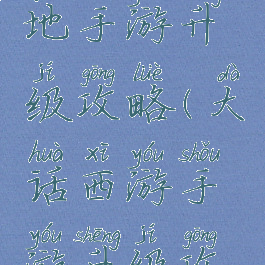 地手游升
jí gōng lüè dà
级攻略(大
huà xī yóu shǒu
话西游手
yóu shēng jí gōng
游升级攻